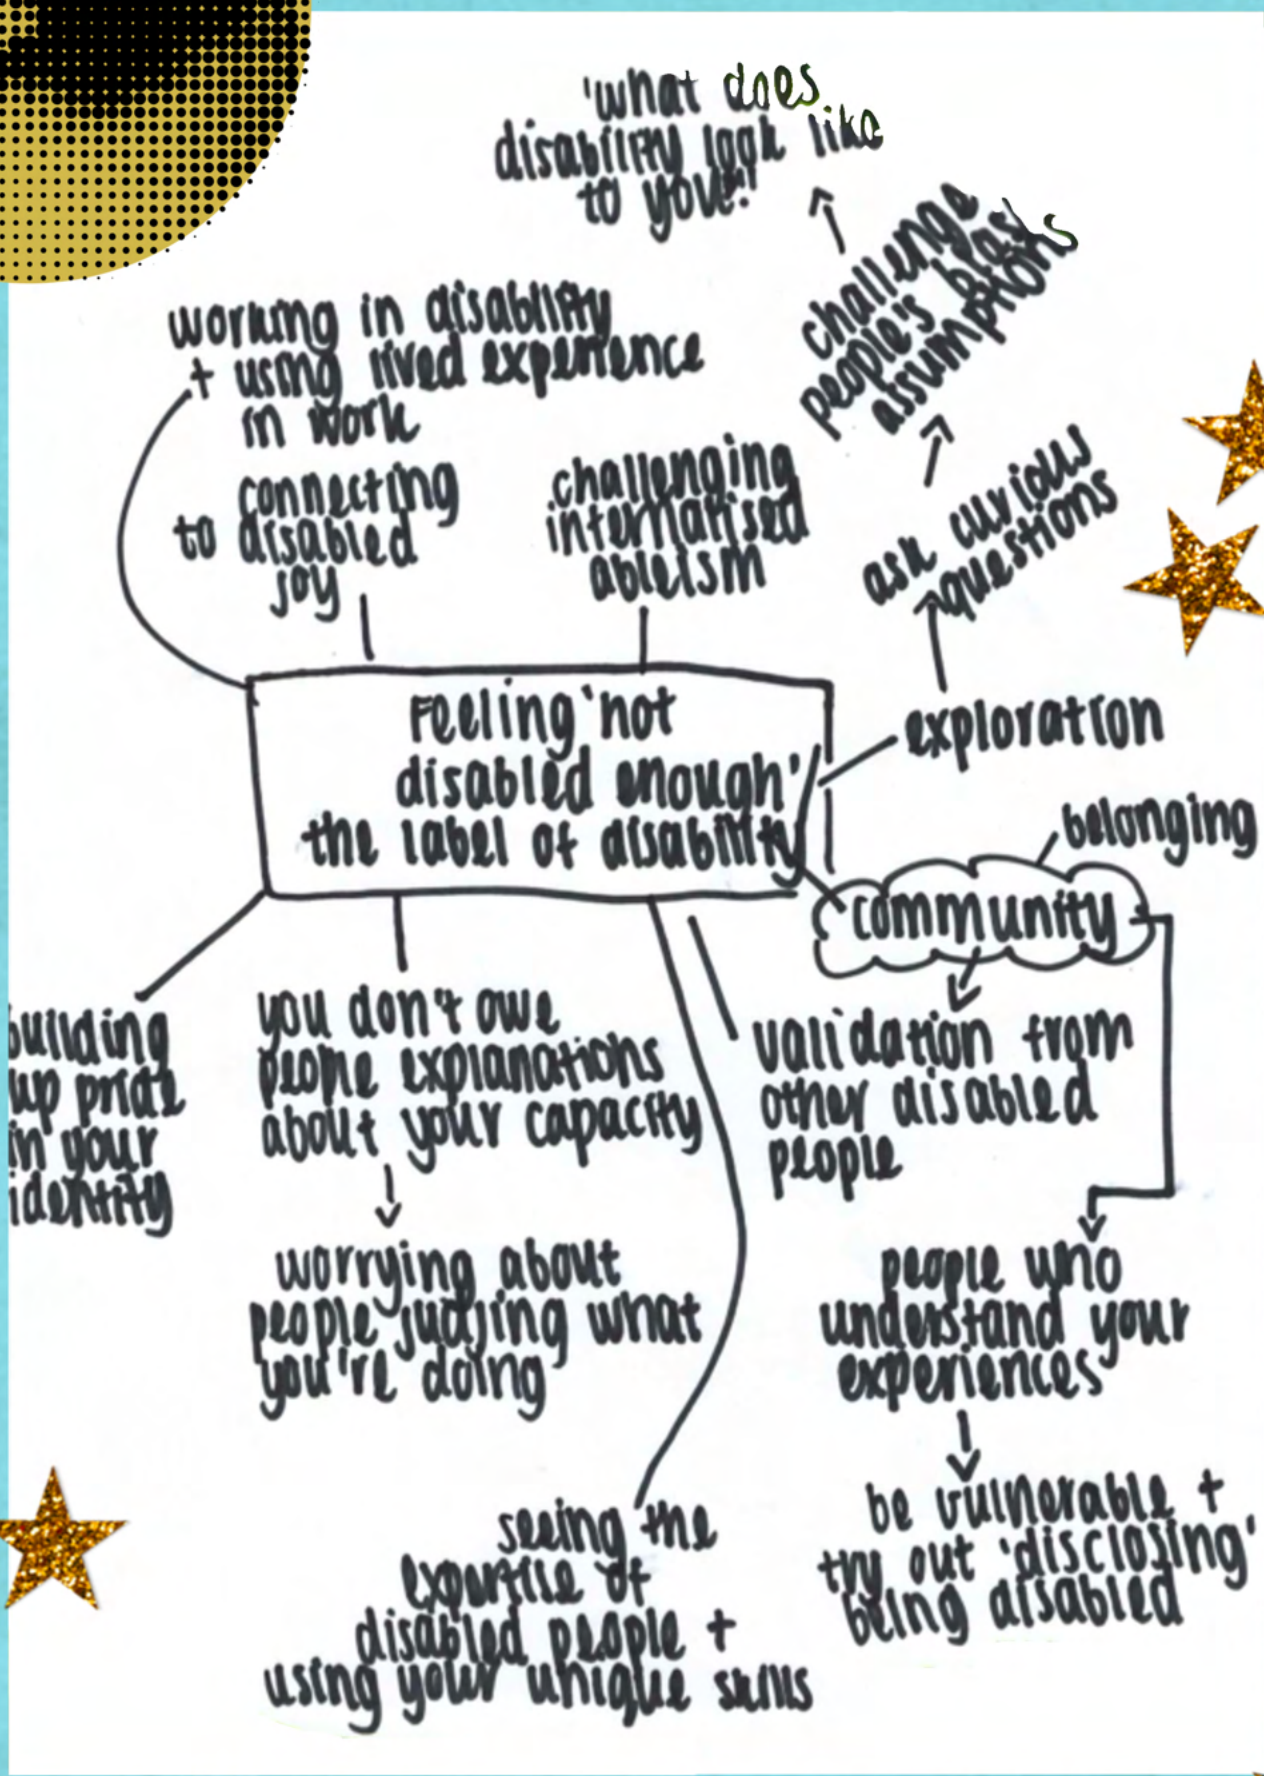 'what does
disability look like
to you?'
challenge
people's bias
assumptions
working in disability
+ using lived experience
in work
connecting
to disabled
joy
challenging
internalised
ableism
ask curious
questions
exploration
Feeling 'not
disabled enough'
the label of disability
belonging
community
building
up pride
in your
identity
you don't owe
people explanations
about your capacity
validation from
other disabled
people
worrying about
people judging what
you're doing
people who
understand your
experiences
be vulnerable +
try out 'disclosing'
being disabled
seeing the
expertise of
disabled people +
using your unique skills